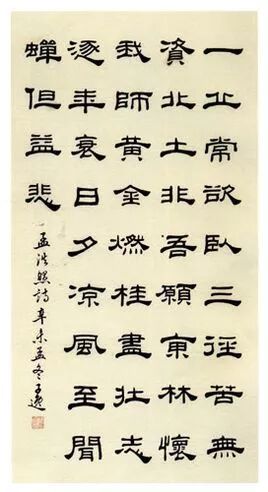 一丘常欲臥三徑苦無
資北土非吾願東林懷
我師黃金燃桂盡壯志
逐年衰日夕涼風至聞
蟬但益悲
孟浩然詩辛未孟冬王